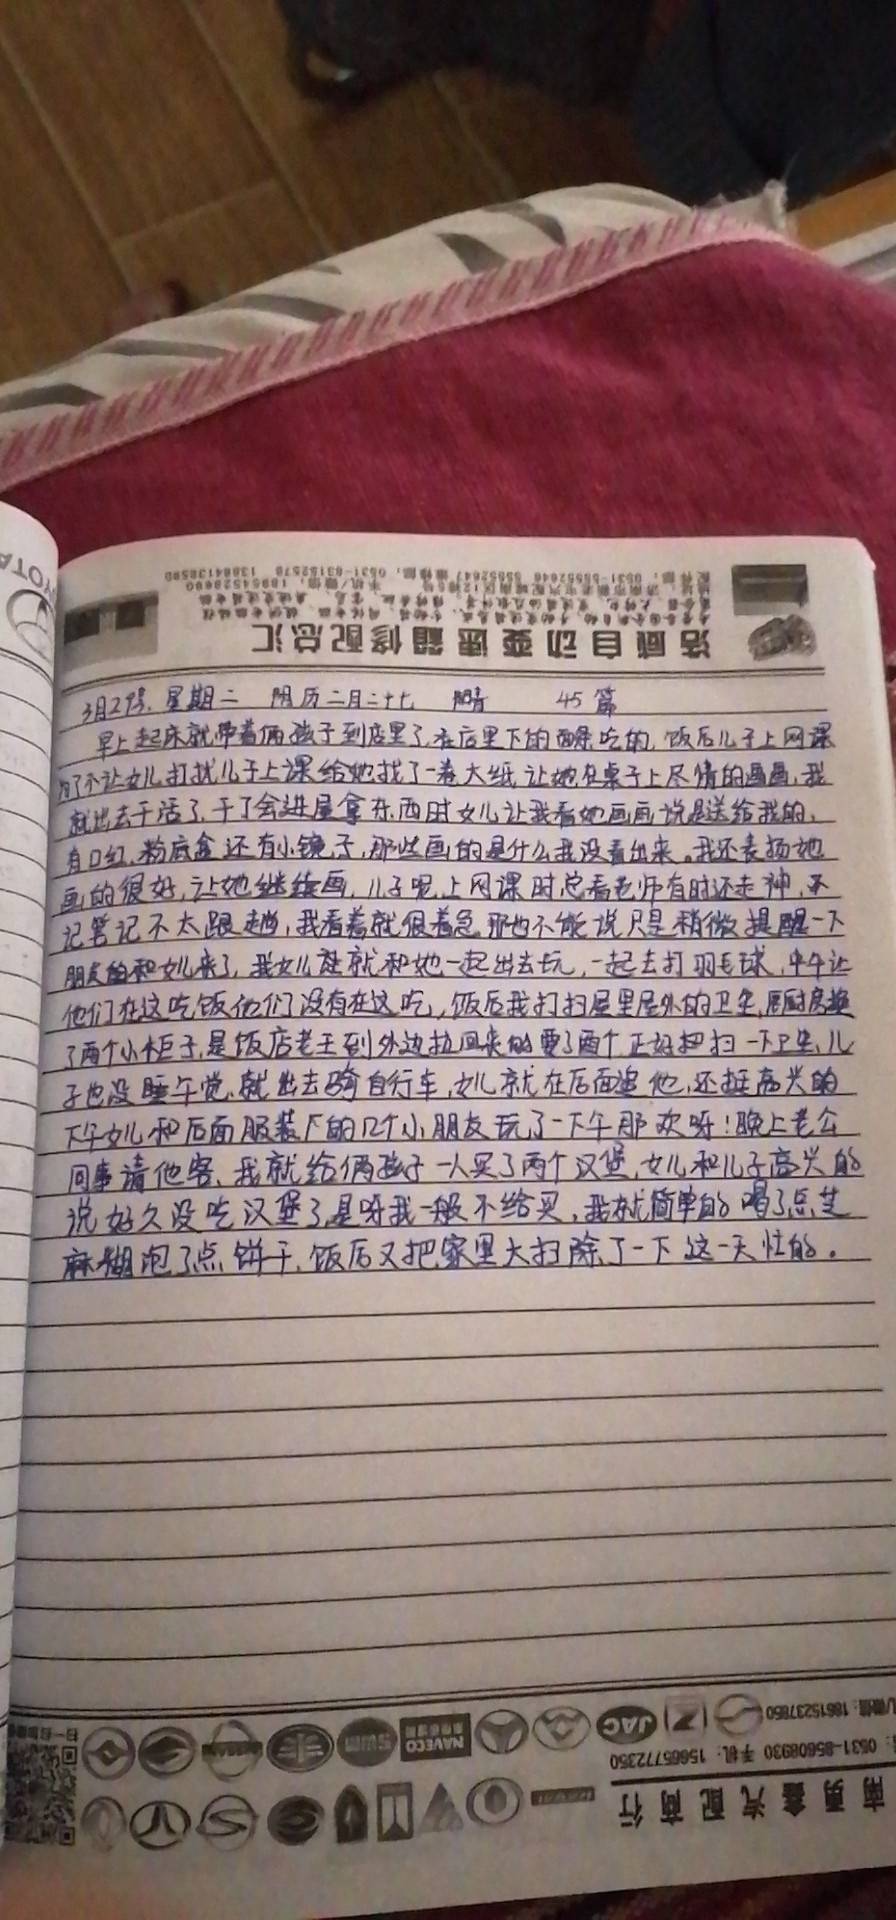 浩威自动变速器修配总汇
3月27号. 星期二 阴历二月二十七 晴 45篇
早上起床就带着俩孩子到店里了,在店里下的面条吃的,饭后儿子上网课
为了不让女儿打扰儿子上课给她找了一卷大纸让她在桌子上尽情的画画,我
就出去干活了,干了会进屋拿东西时女儿让我看她画画说是送给我的,
有口红,粉底盒还有小镜子,那些画的是什么我没看出来。我还表扬她
画的很好,让她继续画,儿子呢上网课时总看老师有时还走神,不
记笔记不太跟趟,我看着就很着急那也不能说只是稍微提醒一下
朋友和女儿来了,我女儿就和她一起出去玩,一起去打羽毛球,中午让
他们在这吃饭他们没有在这吃,饭后我打扫屋里屋外的卫生,厨房换
了两个小柜子,是饭店老王到外边拉回来的要了两个正好把扫一下卫生,儿
子也没睡午觉,就出去骑自行车,女儿就在后面追他,还挺高兴的
下午女儿和后面服装厂的几个小朋友玩了一下午那欢呀!晚上老公
同事请他客,我就给俩孩子一人买了两个汉堡,女儿和儿子高兴的
说好久没吃汉堡了是呀我一般不给买,我就简单的喝了点芝
麻糊泡了点饼干,饭后又把家里大扫除了一下这一天忙的。
南勇鑫汽配商行
0531-85608930 手机:15665772350
微信:18615237850
JAC
NAVECO
SWM